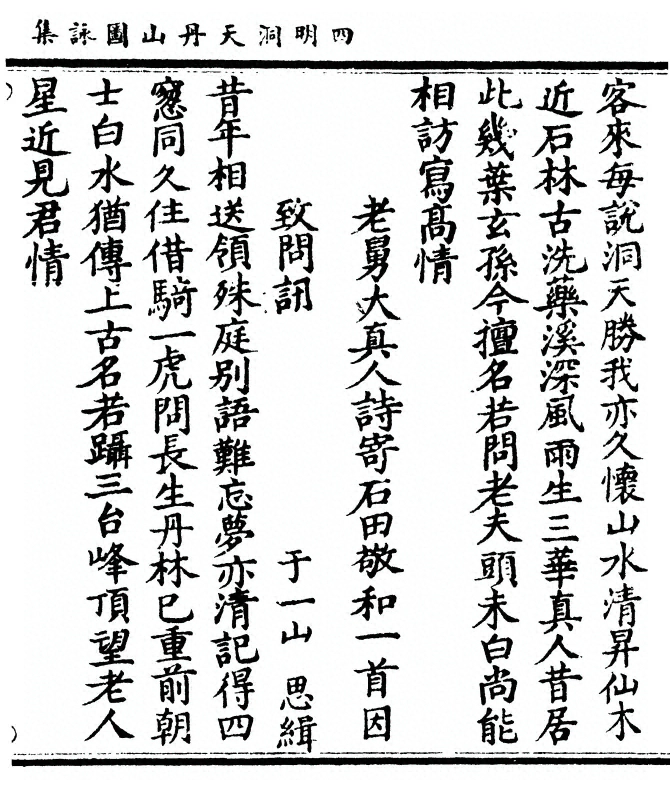 四明洞天丹山圖詠集
客來每說洞天勝我亦久懷山水清昇仙木
近石林古洗藥溪深風雨生三華真人昔居
此幾葉玄孫今擅名若問老夫頭未白尚能
相訪寫高情
老舅大真人詩寄石田敬和一首因
致問訊 于一山 思緝
昔年相送領殊庭別語難忘夢亦清記得四
窻同久住借騎一虎問長生丹林已重前朝
士白水猶傳上古名若躡三台峰頂望老人
星近見君情